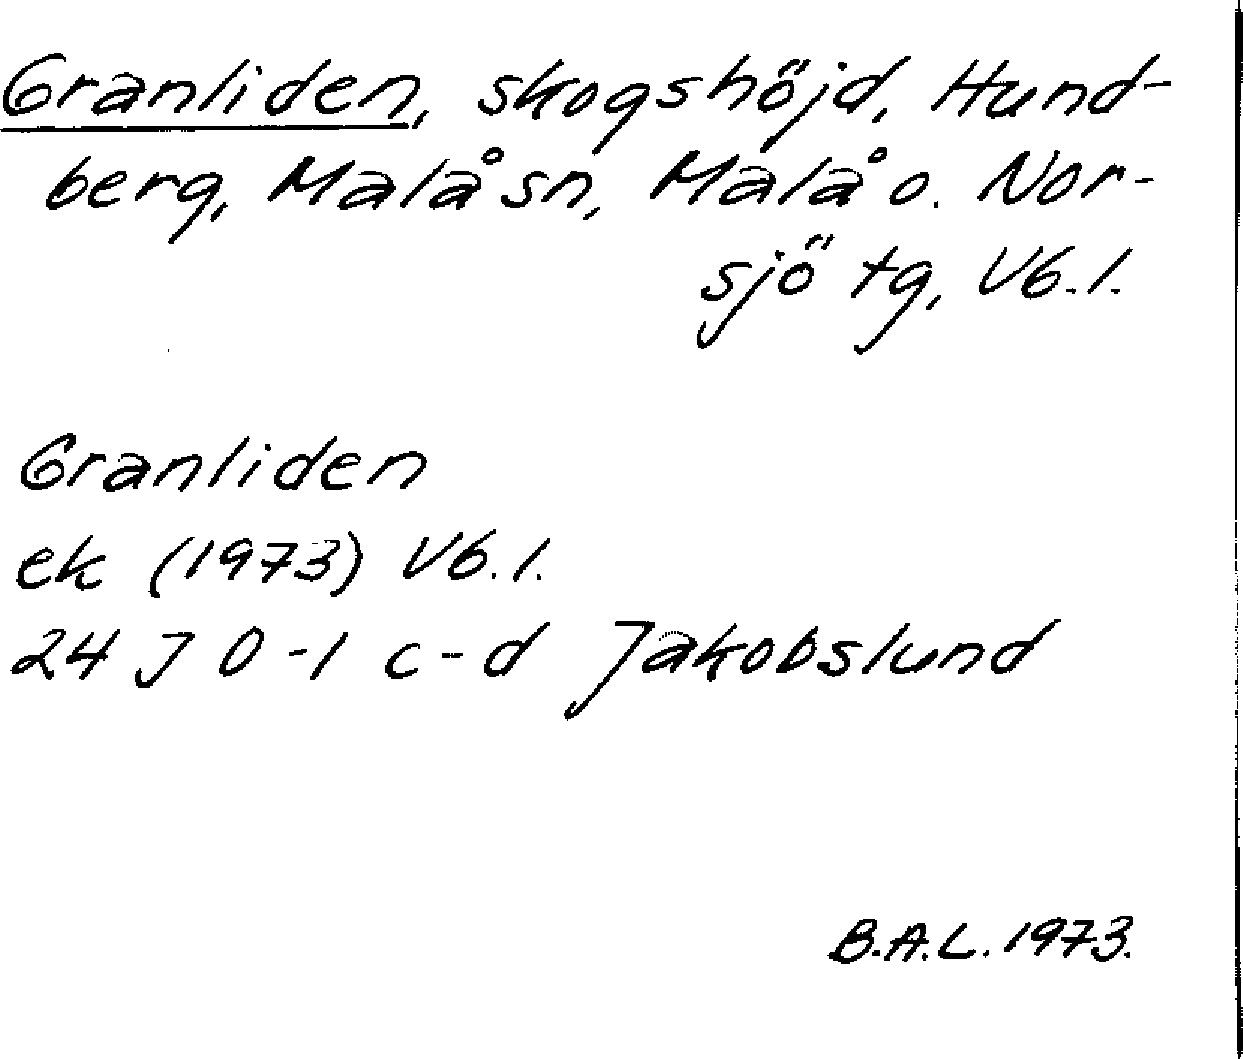 Granliden, skogshöjd, Hund-
berg, Malåsn, Malå o. Nor-
sjö tg, V6.1.
Granliden
ek (1973) V6.1.
24 J 0-1 c-d Jakobslund
B.A.L. 1973.